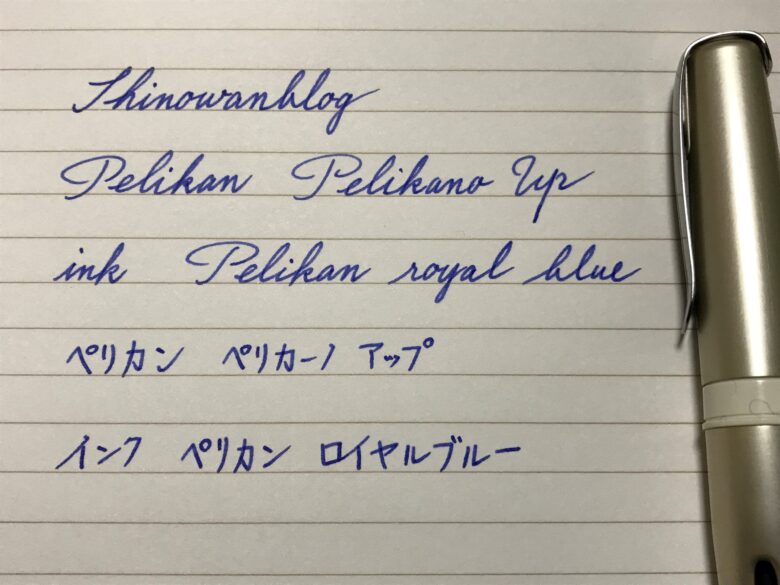 Shinowanblog
Pelikan Pelikano Up
ink Pelikan royal blue
ペリカン ペリカーノ アップ
インク ペリカン ロイヤルブルー